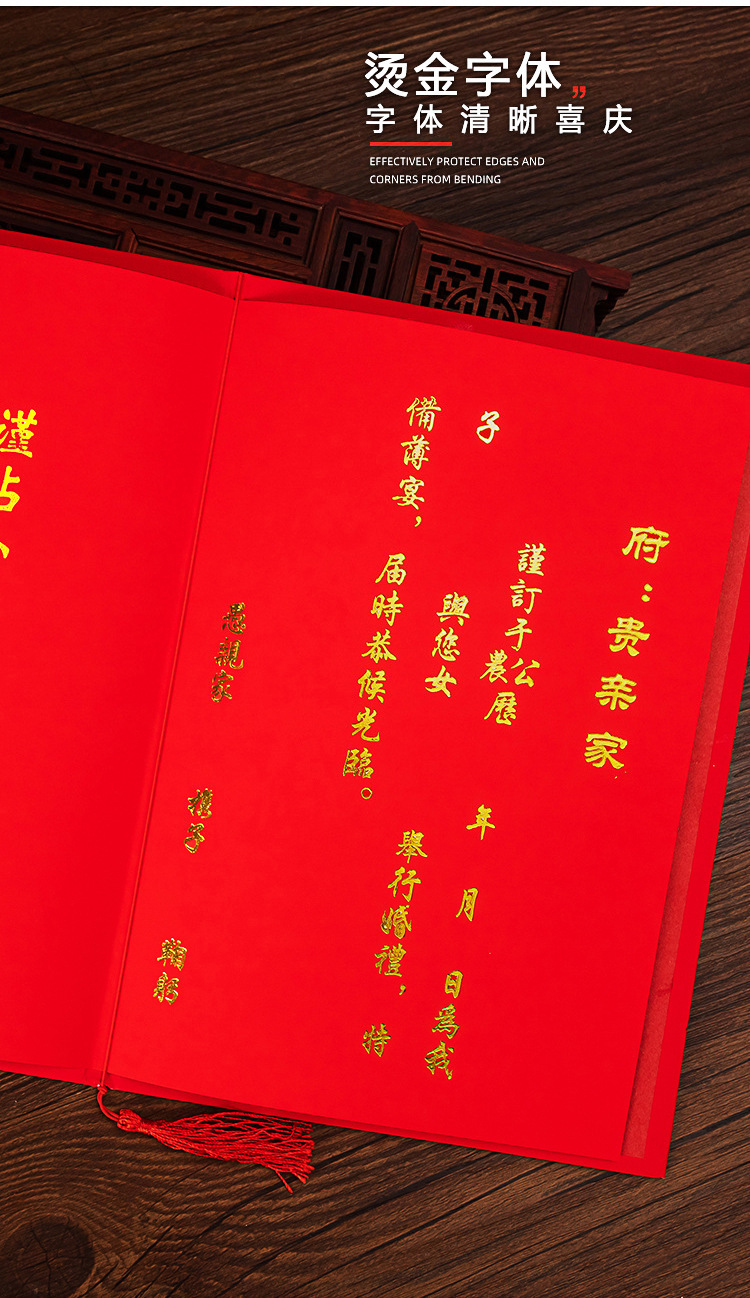 烫金字体
字体清晰喜庆
EFFECTIVELY PROTECT EDGES AND
CORNERS FROM BENDING
府：贵亲家
謹訂于公農歷 年 月 日為我
子 與您女 舉行婚禮，特
備薄宴， 届時恭候光臨。
愚親家 携子 鞠躬
謹占